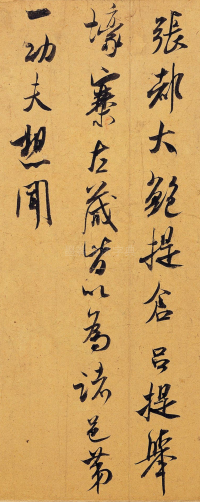 張都大鮑提倉呂提舉
壕寨左藏皆以為諸邑第
一功夫想聞